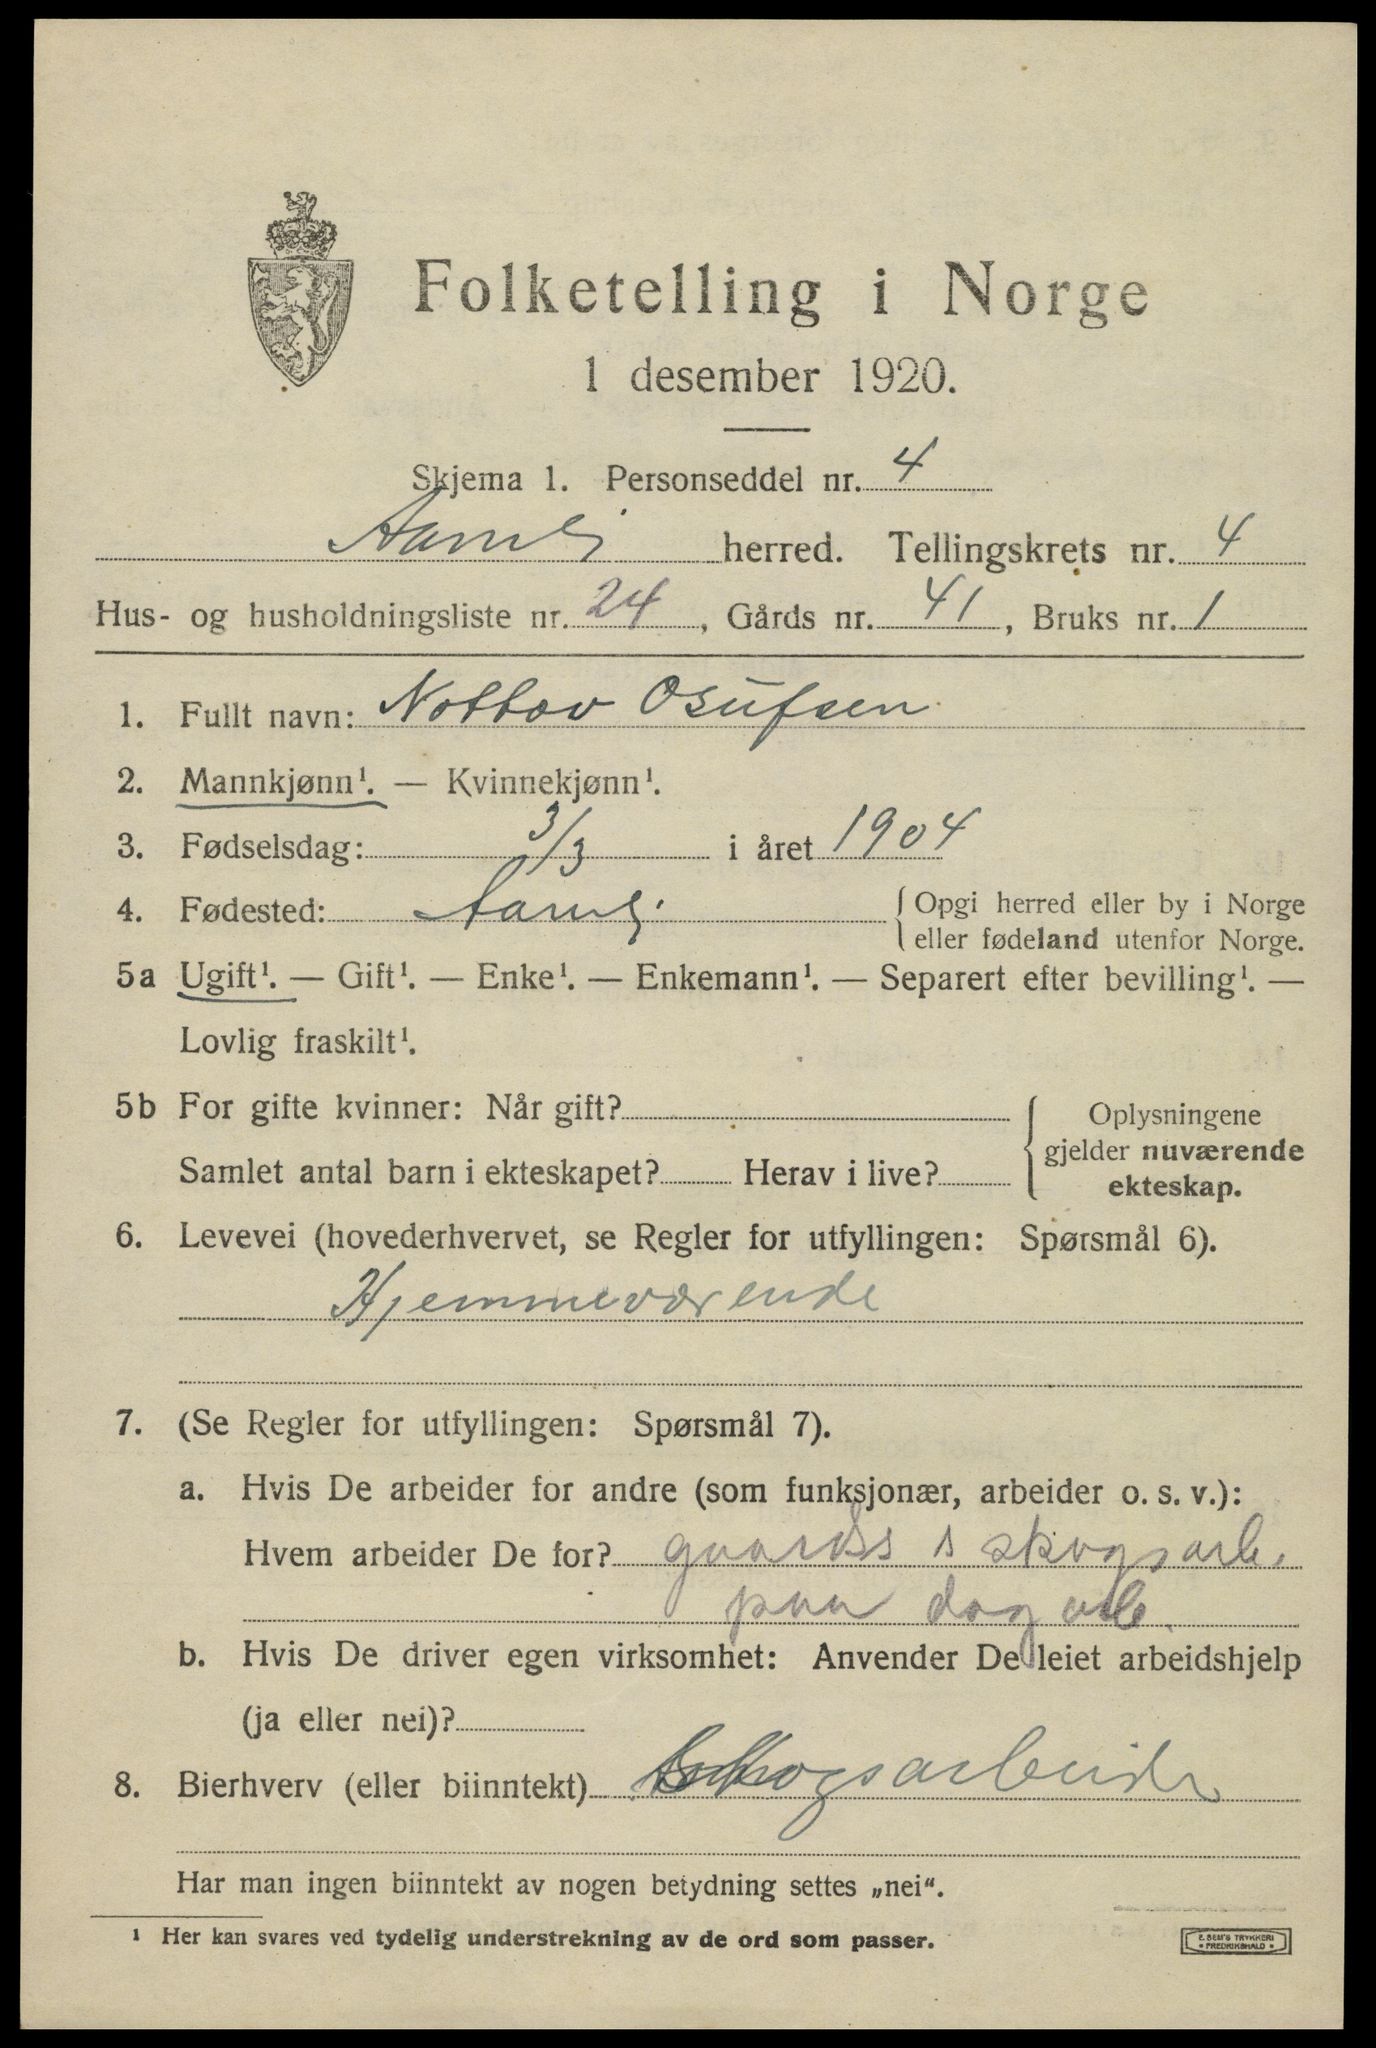 Folketelling i Norge
1 desember 1920.
Skjema 1. Personseddel nr. 4
Aamli herred. Tellingskrets nr. 4
Hus- og husholdningsliste nr. 24, Gårds nr. 41, Bruks nr. 1
1. Fullt navn: Nottov Osufsen
2. Mannkjønn¹. — Kvinnekjønn¹.
3. Fødselsdag: 3/3 i året 1904
4. Fødested: Aamli { Opgi herred eller by i Norge
eller fødeland utenfor Norge.
5a Ugift¹. — Gift¹. — Enke¹. — Enkemann¹. — Separert efter bevilling¹. —
Lovlig fraskilt¹.
5b For gifte kvinner: Når gift?
Samlet antal barn i ekteskapet? Herav i live?
Oplysningene
gjelder nuværende
ekteskap.
6. Levevei (hovederhvervet, se Regler for utfyllingen: Spørsmål 6).
Hjemmeværende
7. (Se Regler for utfyllingen: Spørsmål 7).
a. Hvis De arbeider for andre (som funksjonær, arbeider o. s. v.):
Hvem arbeider De for? gaards s skogsarb.
paa
b. Hvis De driver egen virksomhet: Anvender De leiet arbeidshjelp
(ja eller nei)?
8. Bierhverv (eller biinntekt) Skogsarbeide
Har man ingen biinntekt av nogen betydning settes „nei“.
¹ Her kan svares ved tydelig understrekning av de ord som passer.
E. SEM'S TRYKKERI
• FREDRIKSHALD •